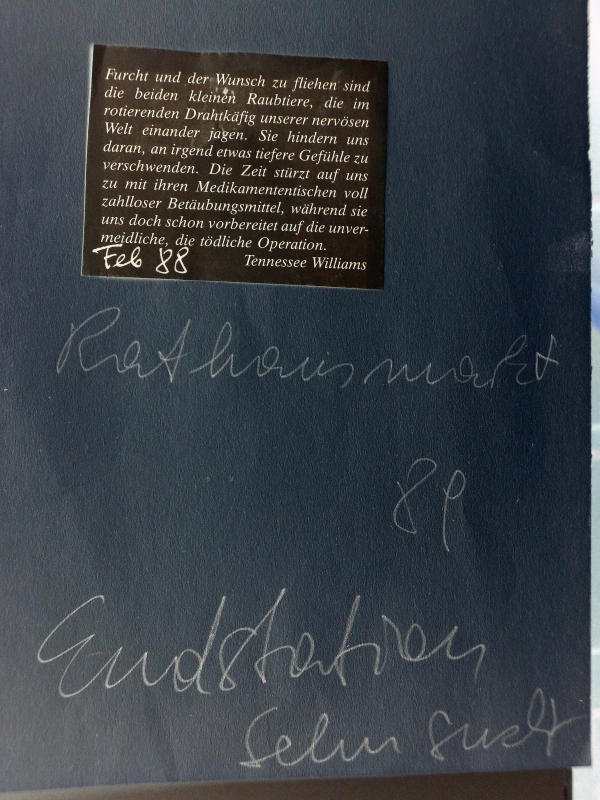 Furcht und der Wunsch zu fliehen sind
die beiden kleinen Raubtiere, die im
rotierenden Drahtkäfig unserer nervösen
Welt einander jagen. Sie hindern uns
daran, an irgend etwas tiefere Gefühle zu
verschwenden. Die Zeit stürzt auf uns
zu mit ihren Medikamententischen voll
zahlloser Betäubungsmittel, während sie
uns doch schon vorbereitet auf die unver-
meidliche, die tödliche Operation.
Feb 88 Tennessee Williams
Rathausmarkt
89
Endstation
Sehnsucht